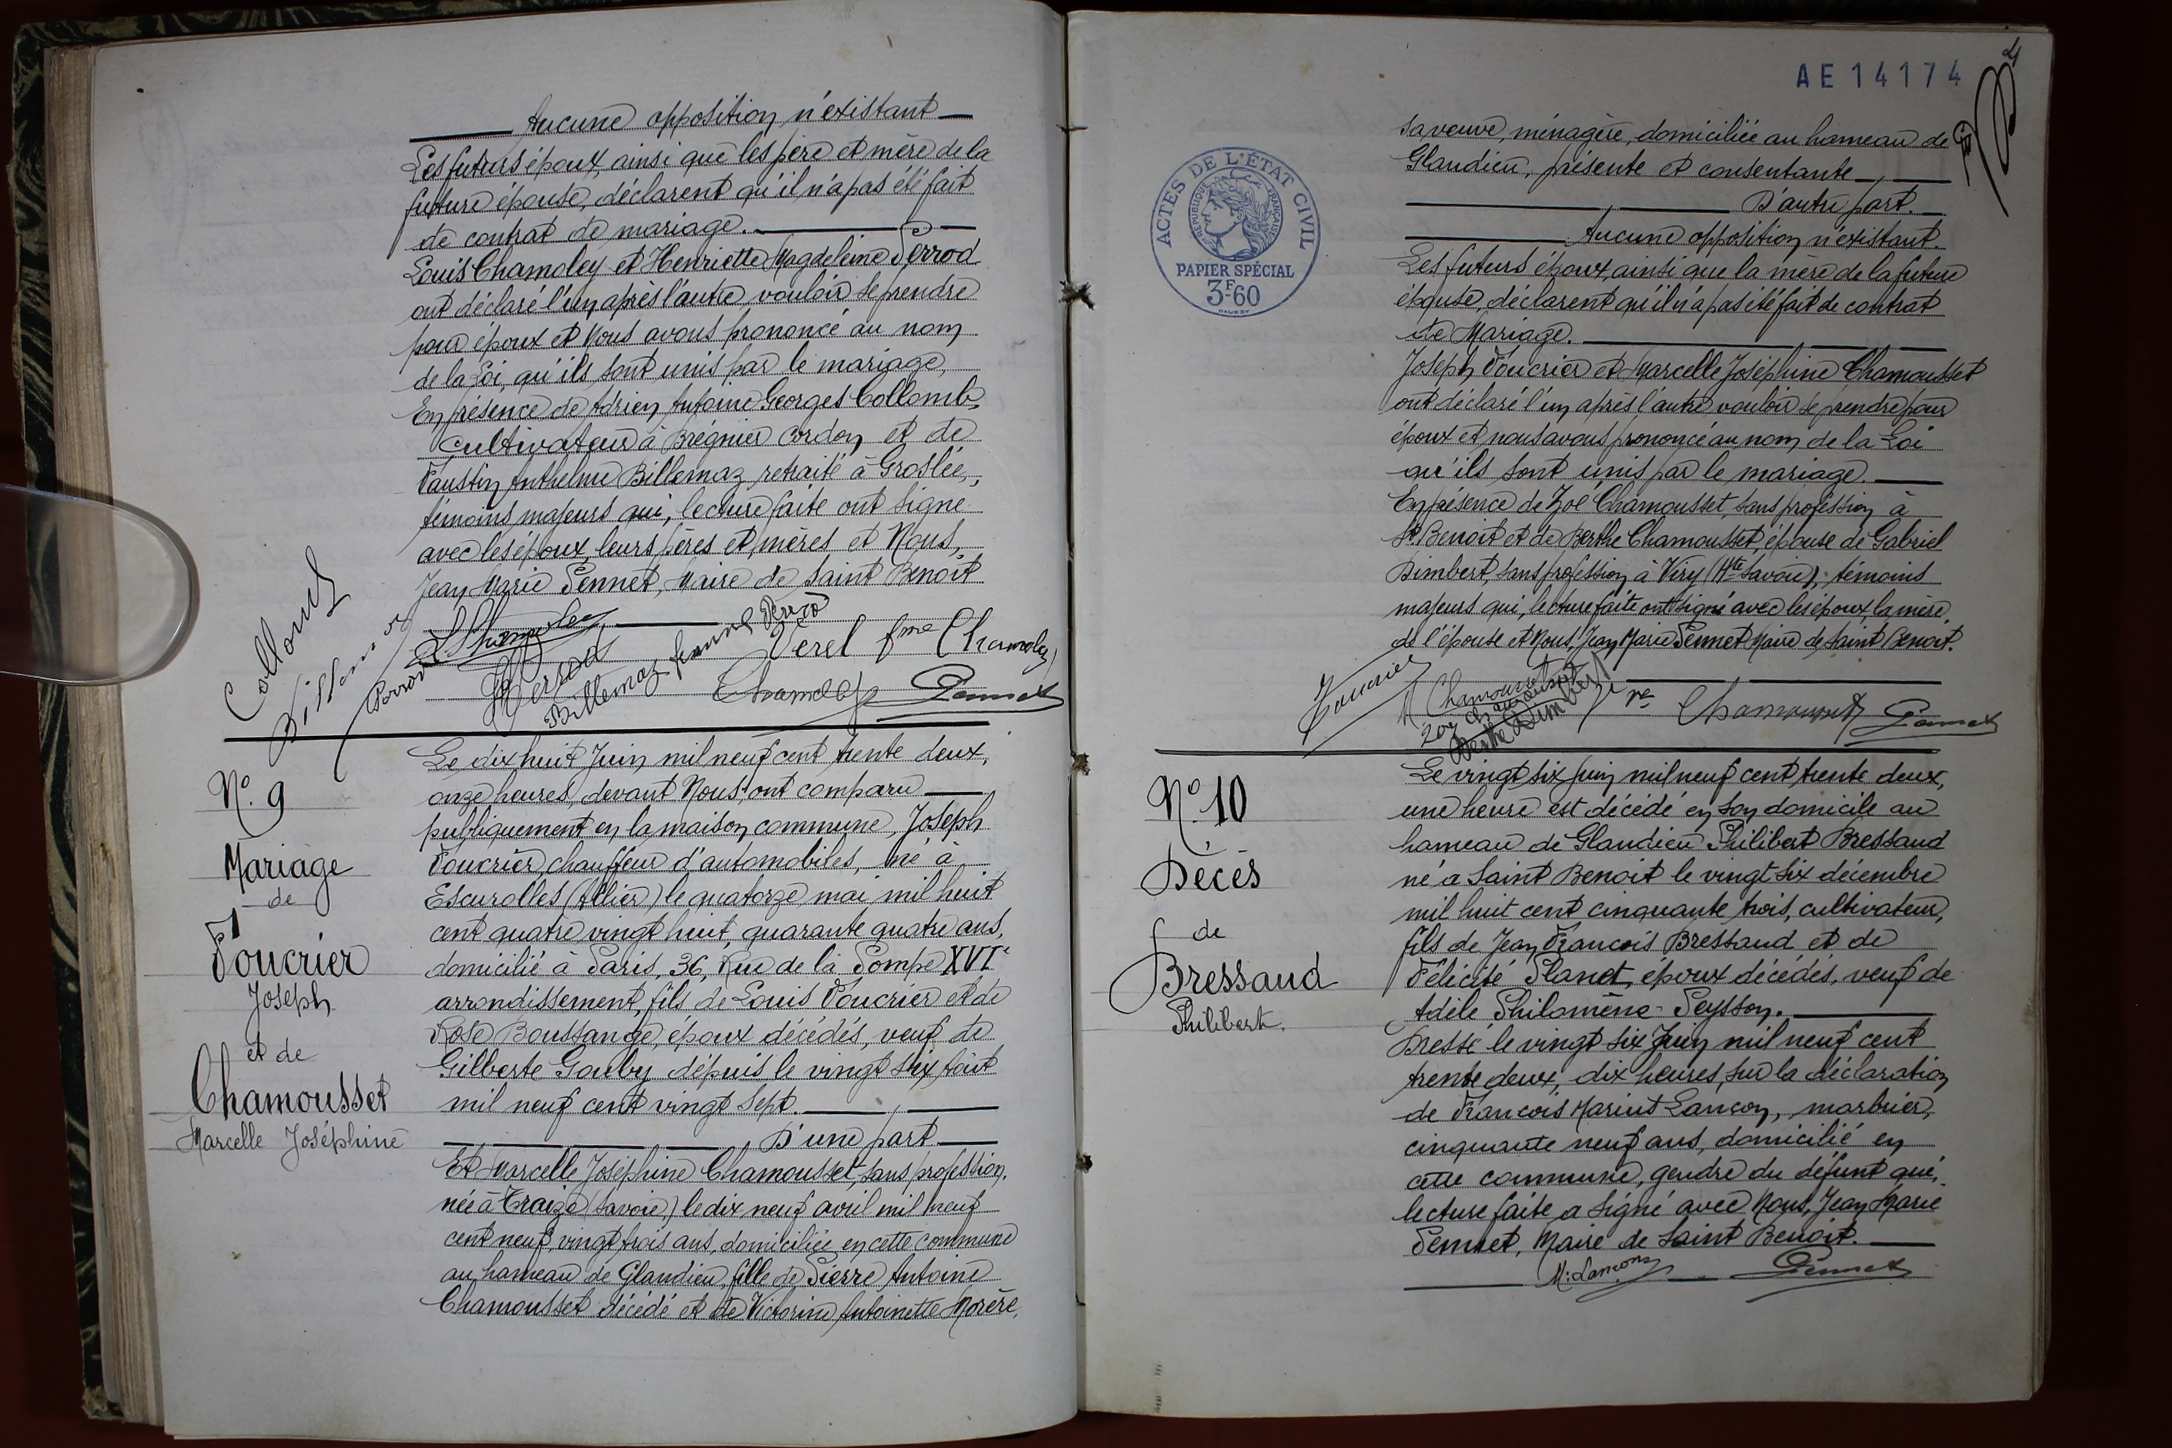 Aucune opposition n'existant
Les futurs époux, ainsi que les père et mère de la
future épouse, déclarent qu'il n'a pas été fait
de contrat de mariage.
Louis Chamoley et Henriette Magdeleine Perrod
ont déclaré l'un après l'autre vouloir se prendre
pour époux et Nous avons prononcé au nom
de la Loi, qu'ils sont unis par le mariage,
En présence de Adrien Antoine Georges Collomb,
cultivateur à Brégnier Cordon et de
Faustin Anthelme Billemaz, retraité à Groslée,
témoins majeurs qui, lecture faite ont signé
avec les époux, leurs pères et mères et Nous,
Jean Marie Pennet, Maire de Saint Benoit
Collomb
Billemaz
Perrod
L Chamoley
H Perrod
Billemaz femme Perrod
Verel fme Chamoley
Chamoley
Pennet
No. 9
Mariage
de
Foucrier
Joseph
et de
Chamousset
Marcelle Joséphine
Le dix huit Juin mil neuf cent trente deux,
onze heures, devant Nous ont comparu
publiquement en la maison commune, Joseph
Foucrier, chauffeur d'automobiles, né à
Escurolles (Allier) le quatorze mai mil huit
cent quatre vingt huit, quarante quatre ans,
domicilié à Paris, 36, Rue de la Pompe XVIe
arrondissement, fils de Louis Foucrier et de
Rose Boussange, époux décédés, veuf de
Gilberte Gouby depuis le vingt six Août
mil neuf cent vingt sept.
D'une part
Et Marcelle Joséphine Chamousset, sans profession,
née à Traize (Savoie) le dix neuf avril mil neuf
cent neuf, vingt trois ans, domiciliée en cette commune
au hameau de Glandieu, fille de Pierre Antoine
Chamousset décédé et de Victorine Antoinette Morère,
AE 14174
4
ACTES DE L'ÉTAT CIVIL
RÉPUBLIQUE FRANÇAISE
PAPIER SPÉCIAL
3F-60
sa veuve, ménagère, domiciliée au hameau de
Glandieu, présente et consentante
D'autre part.
Aucune opposition n'existant.
Les futurs époux, ainsi que la mère de la future
épouse, déclarent qu'il n'a pas été fait de contrat
de Mariage.
Joseph Foucrier et Marcelle Joséphine Chamousset
ont déclaré l'un après l'autre vouloir se prendre pour
époux et nous avons prononcé au nom de la Loi
qu'ils sont unis par le mariage.
En présence de Zoé Chamousset, sans profession à
St Benoit et de Berthe Chamousset, épouse de Gabriel
Dimbert, sans profession à Viry (Hte Savoie), témoins
majeurs qui, lecture faite ont signé avec les époux, la mère
de l'épouse et Nous, Jean Marie Pennet Maire de Saint Benoit.
Foucrier
M Chamousset
Zoé Chamousset
Berthe Dimbert
Ve Chamousset
Pennet
No 10
Décès
de
Bressaud
Philibert.
Le vingt six Juin mil neuf cent trente deux,
une heure est décédé en son domicile au
hameau de Glandieu Philibert Bressaud
né à Saint Benoit le vingt six décembre
mil huit cent cinquante trois, cultivateur,
fils de Jean Francois Bressaud et de
Félicité Planet, époux décédés, veuf de
Adèle Philomène Peysson.
Dressé le vingt six Juin mil neuf cent
trente deux, dix heures, sur la déclaration
de Francois Marius Lancon, marbrier,
cinquante neuf ans, domicilié en
cette commune, gendre du défunt qui,
lecture faite a signé avec Nous, Jean Marie
Pennet, Maire de Saint Benoit.
M. Lancon
Pennet